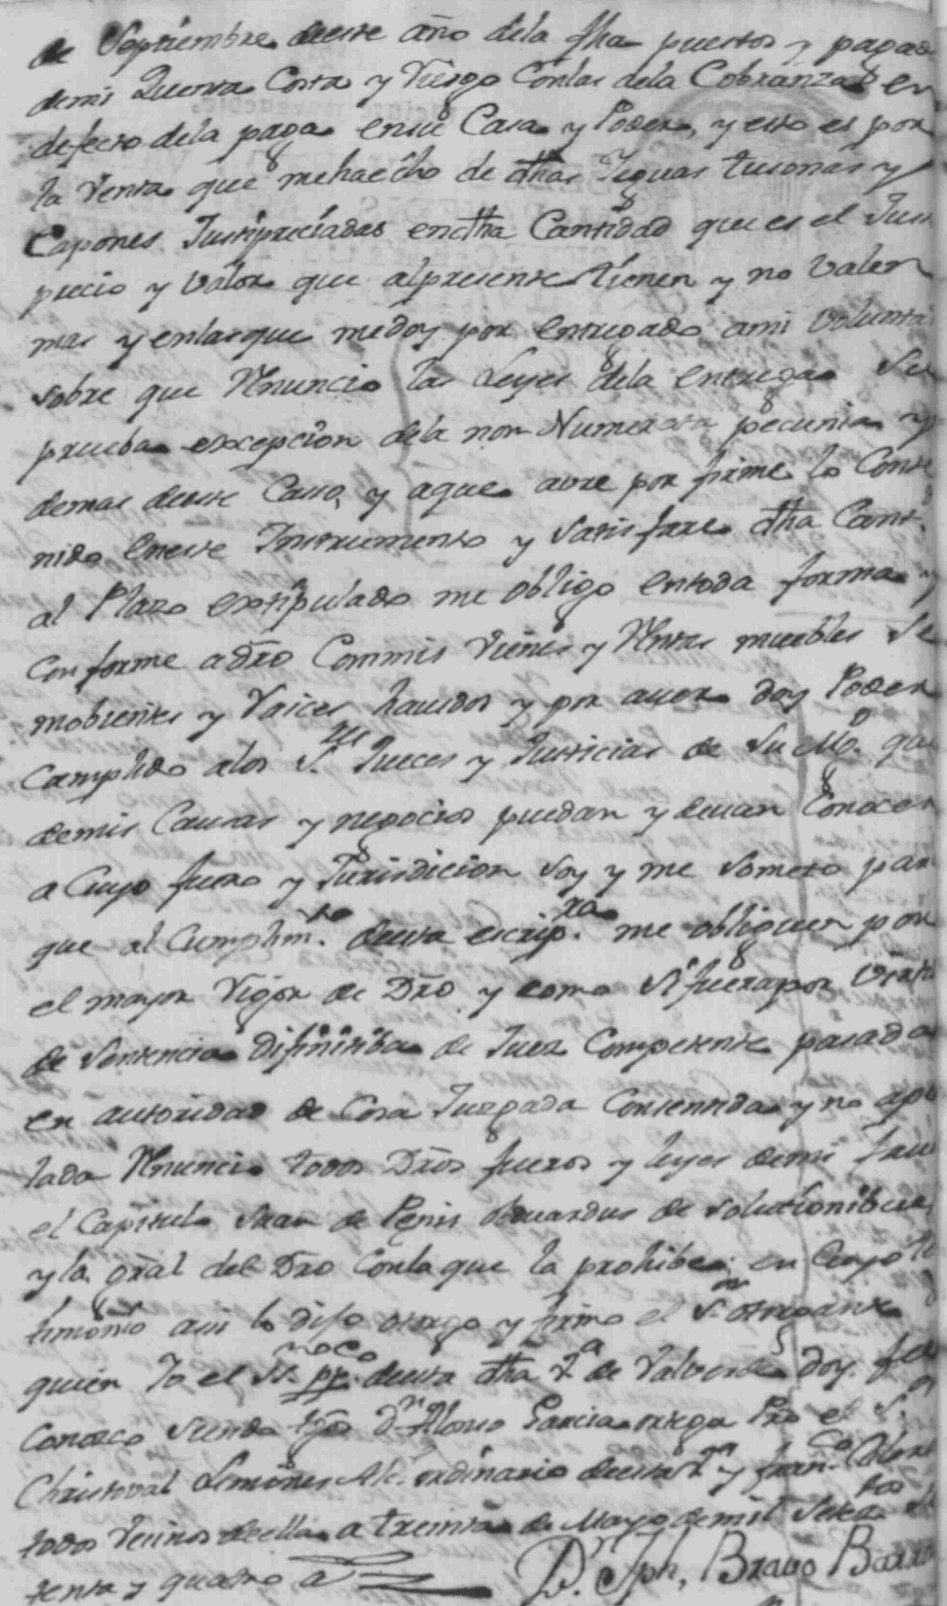 de Septiembre deeste año dela fha puestos y pagados
demi Quenta Costa y Riesgo Conlas dela Cobranza en
defecto dela paga ensu Casa y Poder, y esto es por
la Venta que mehaecho de dhas Yeguas tusonas y
Capones Justipreciadas endha Cantidad que es el Jus
precio y Valor que alpresente tienen y no Valen
mas y enlasque medoy por entregado ami Volunta
sobre que Renuncio las Leyes dela entrega Su
prueba excepcion dela non Numerata pecunia y
demas deeste Caso, y aque avre por firme lo Conte
nido eneste Instrumento y Satisfare dha Cant.
al Plazo extipulado me obligo entoda forma y
Conforme aDro Conmis Vienes y Rentas muebles Se
mobientes y Raices havidos y por aver doy Poder
Cumplido alos S.res Jueces y Justicias de Su Mg. que
demis Causas y negocios puedan y devan Conocer
a Cuyo fuero y Jurisdicion soy y me someto para
que al Cumplim.to deesta escrip.ra me obliguen por
el mayor Vigor de Dro y como si fuerapor Virtu
de Sentencia Difinitiba de Juez Competente pasada
en autoridad de Cosa Juzgada Consentida y no ape
lada Renuncio todos Dros fueros y leyes demi favor
el Capitulo Suan de Penis Obduardus de Solutionibus
y la gral del Dro Conla que la prohibe en Cuyo te
timonio asi lo dijo otorgo y firmo el S.or otorgante
quien Yo el SS. pp.co deesta dha V.a de Valverde doy fee
Conozco siendo tgos D.n Alonso Garcia ortega Pro el S.
Christoval Limones Alc. ordinario deesta V.a y fran.co
todos Vecinos deella a treinta de Mayo demil Setez.tos
tenta y quatro a
D. Jph, Bravo Barr